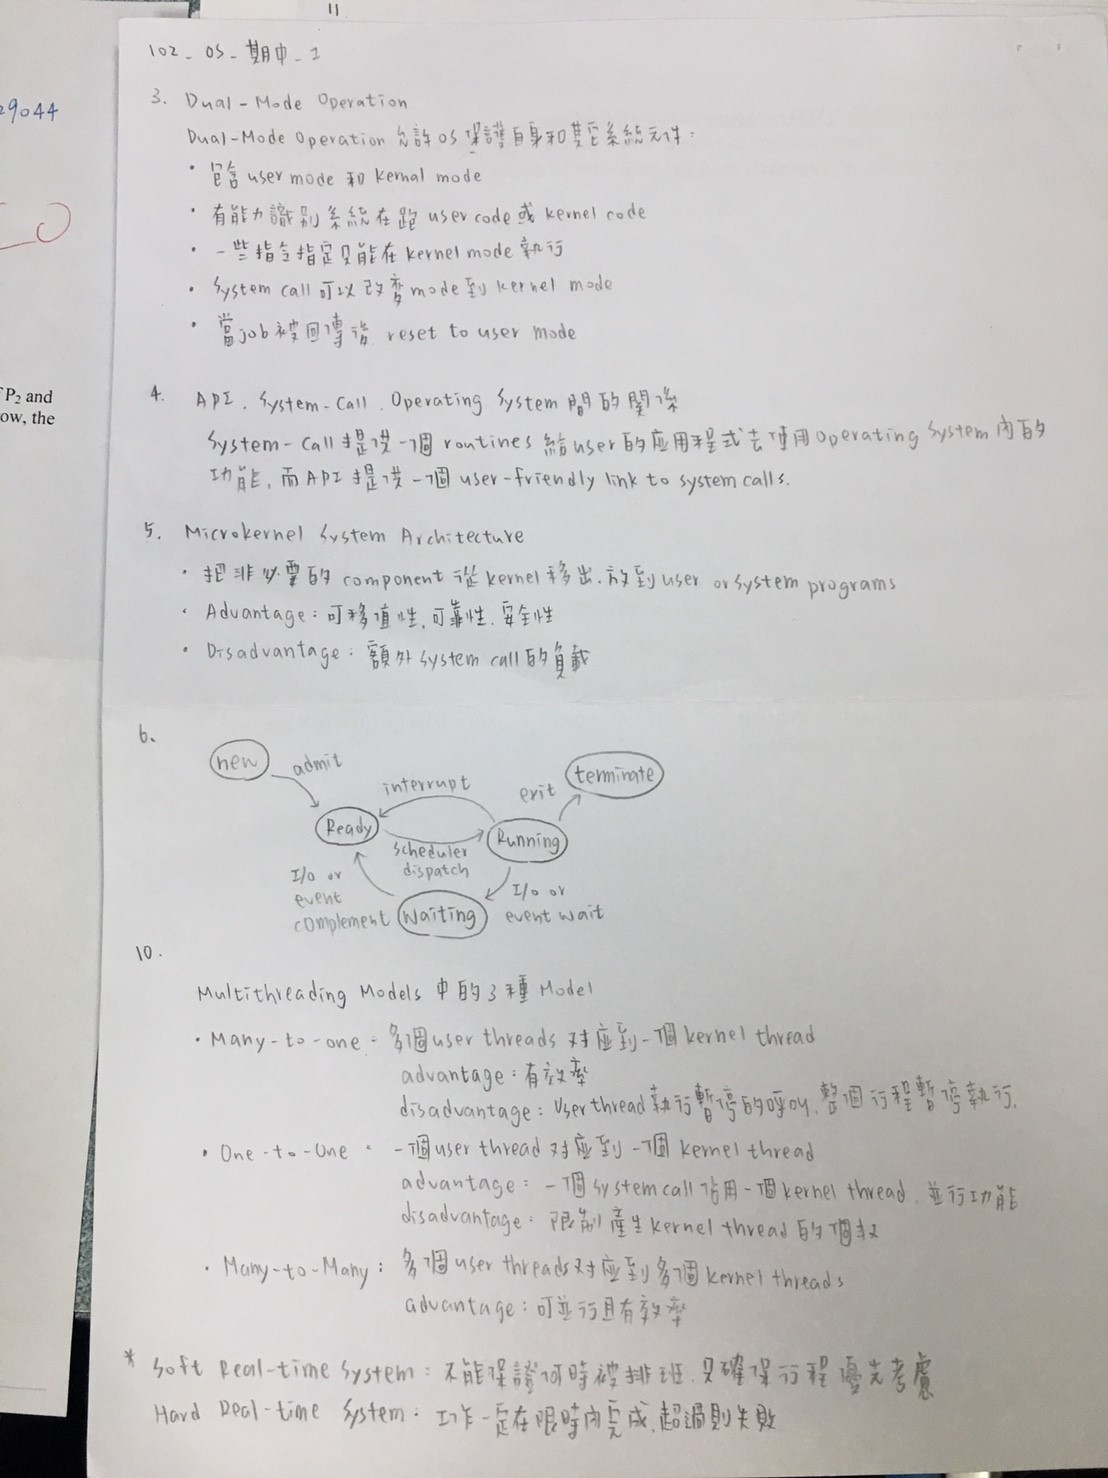 11
29044
P₂ and
ow, the
102_OS_期中_1
3. Dual-Mode Operation
Dual-Mode Operation 允許OS保護自身和其它系統元件：
• 包含 user mode 和 kernal mode
• 有能力識別系統在跑 user code 或 kernel code
• 一些指令指定只能在 kernel mode 執行
• System call 可以改變mode到 kernel mode
• 當job被回傳後 reset to user mode
4. API、System-Call、Operating System 間的關係
System-Call提供一個 routines 給user的应用程式去使用 Operating System 內的
功能，而API提供一個 user-friendly link to system calls.
5. Microkernel System Architecture
• 把非必要的 component 從 kernel 移出、放到user or system programs
• Advantage：可移值性、可靠性、安全性
• Disadvantage：額外 system call 的負載
6.
new
admit
interrupt
terminate
exit
Ready
Running
scheduler
dispatch
I/O or
event
complement
Waiting
I/O or
event wait
10.
Multithreading Models 中的3種 Model
• Many-to-one：多個user threads 对应到一個 kernel thread
advantage：有效率
disadvantage：User thread 執行暫停的呼叫、整個行程暫停執行.
• One-to-One： 一個user thread 对应到一個 kernel thread
advantage：一個system call 佔用一個kernel thread、並行功能
disadvantage：限制產生kernel thread 的個数
• Many-to-Many：多個user threads对应到多個 kernel threads
advantage：可並行且有效率
* Soft Real-time System：不能保證何時被排班、只確保行程優先考慮
Hard Real-time System：工作一定在限時內完成、超過則失敗